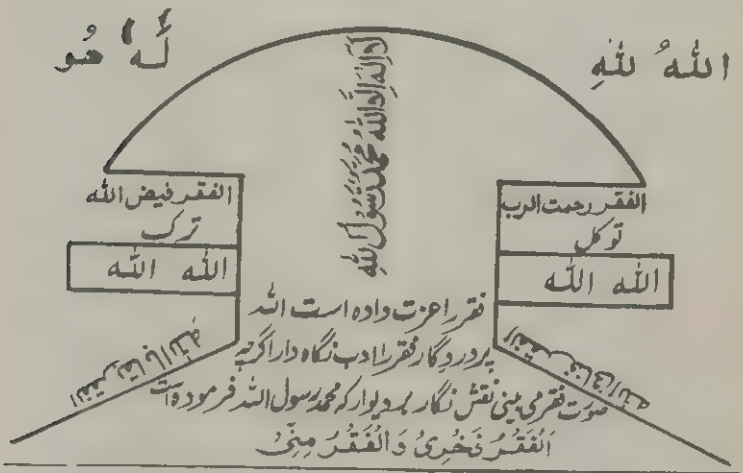 اللهُ لِلّٰهِ
لَهُ هُو
لا اله الا الله محمد رسول الله
الفقر رحمت الرب
توکل
الله الله
الفقر فیض الله
ترک
الله الله
الفقر فنا فی الله
الفقر بقا بالله
فقر را عزت داده است الله
پروردگار فقر را ادب نگاه دار اگرچه
صورت فقر می بینی نقش نگار بر دیوار که محمد رسول الله فرموده است
اَلْفَقْرُ فَخْرِىْ وَالْفَقْرُ مِنِّىْ